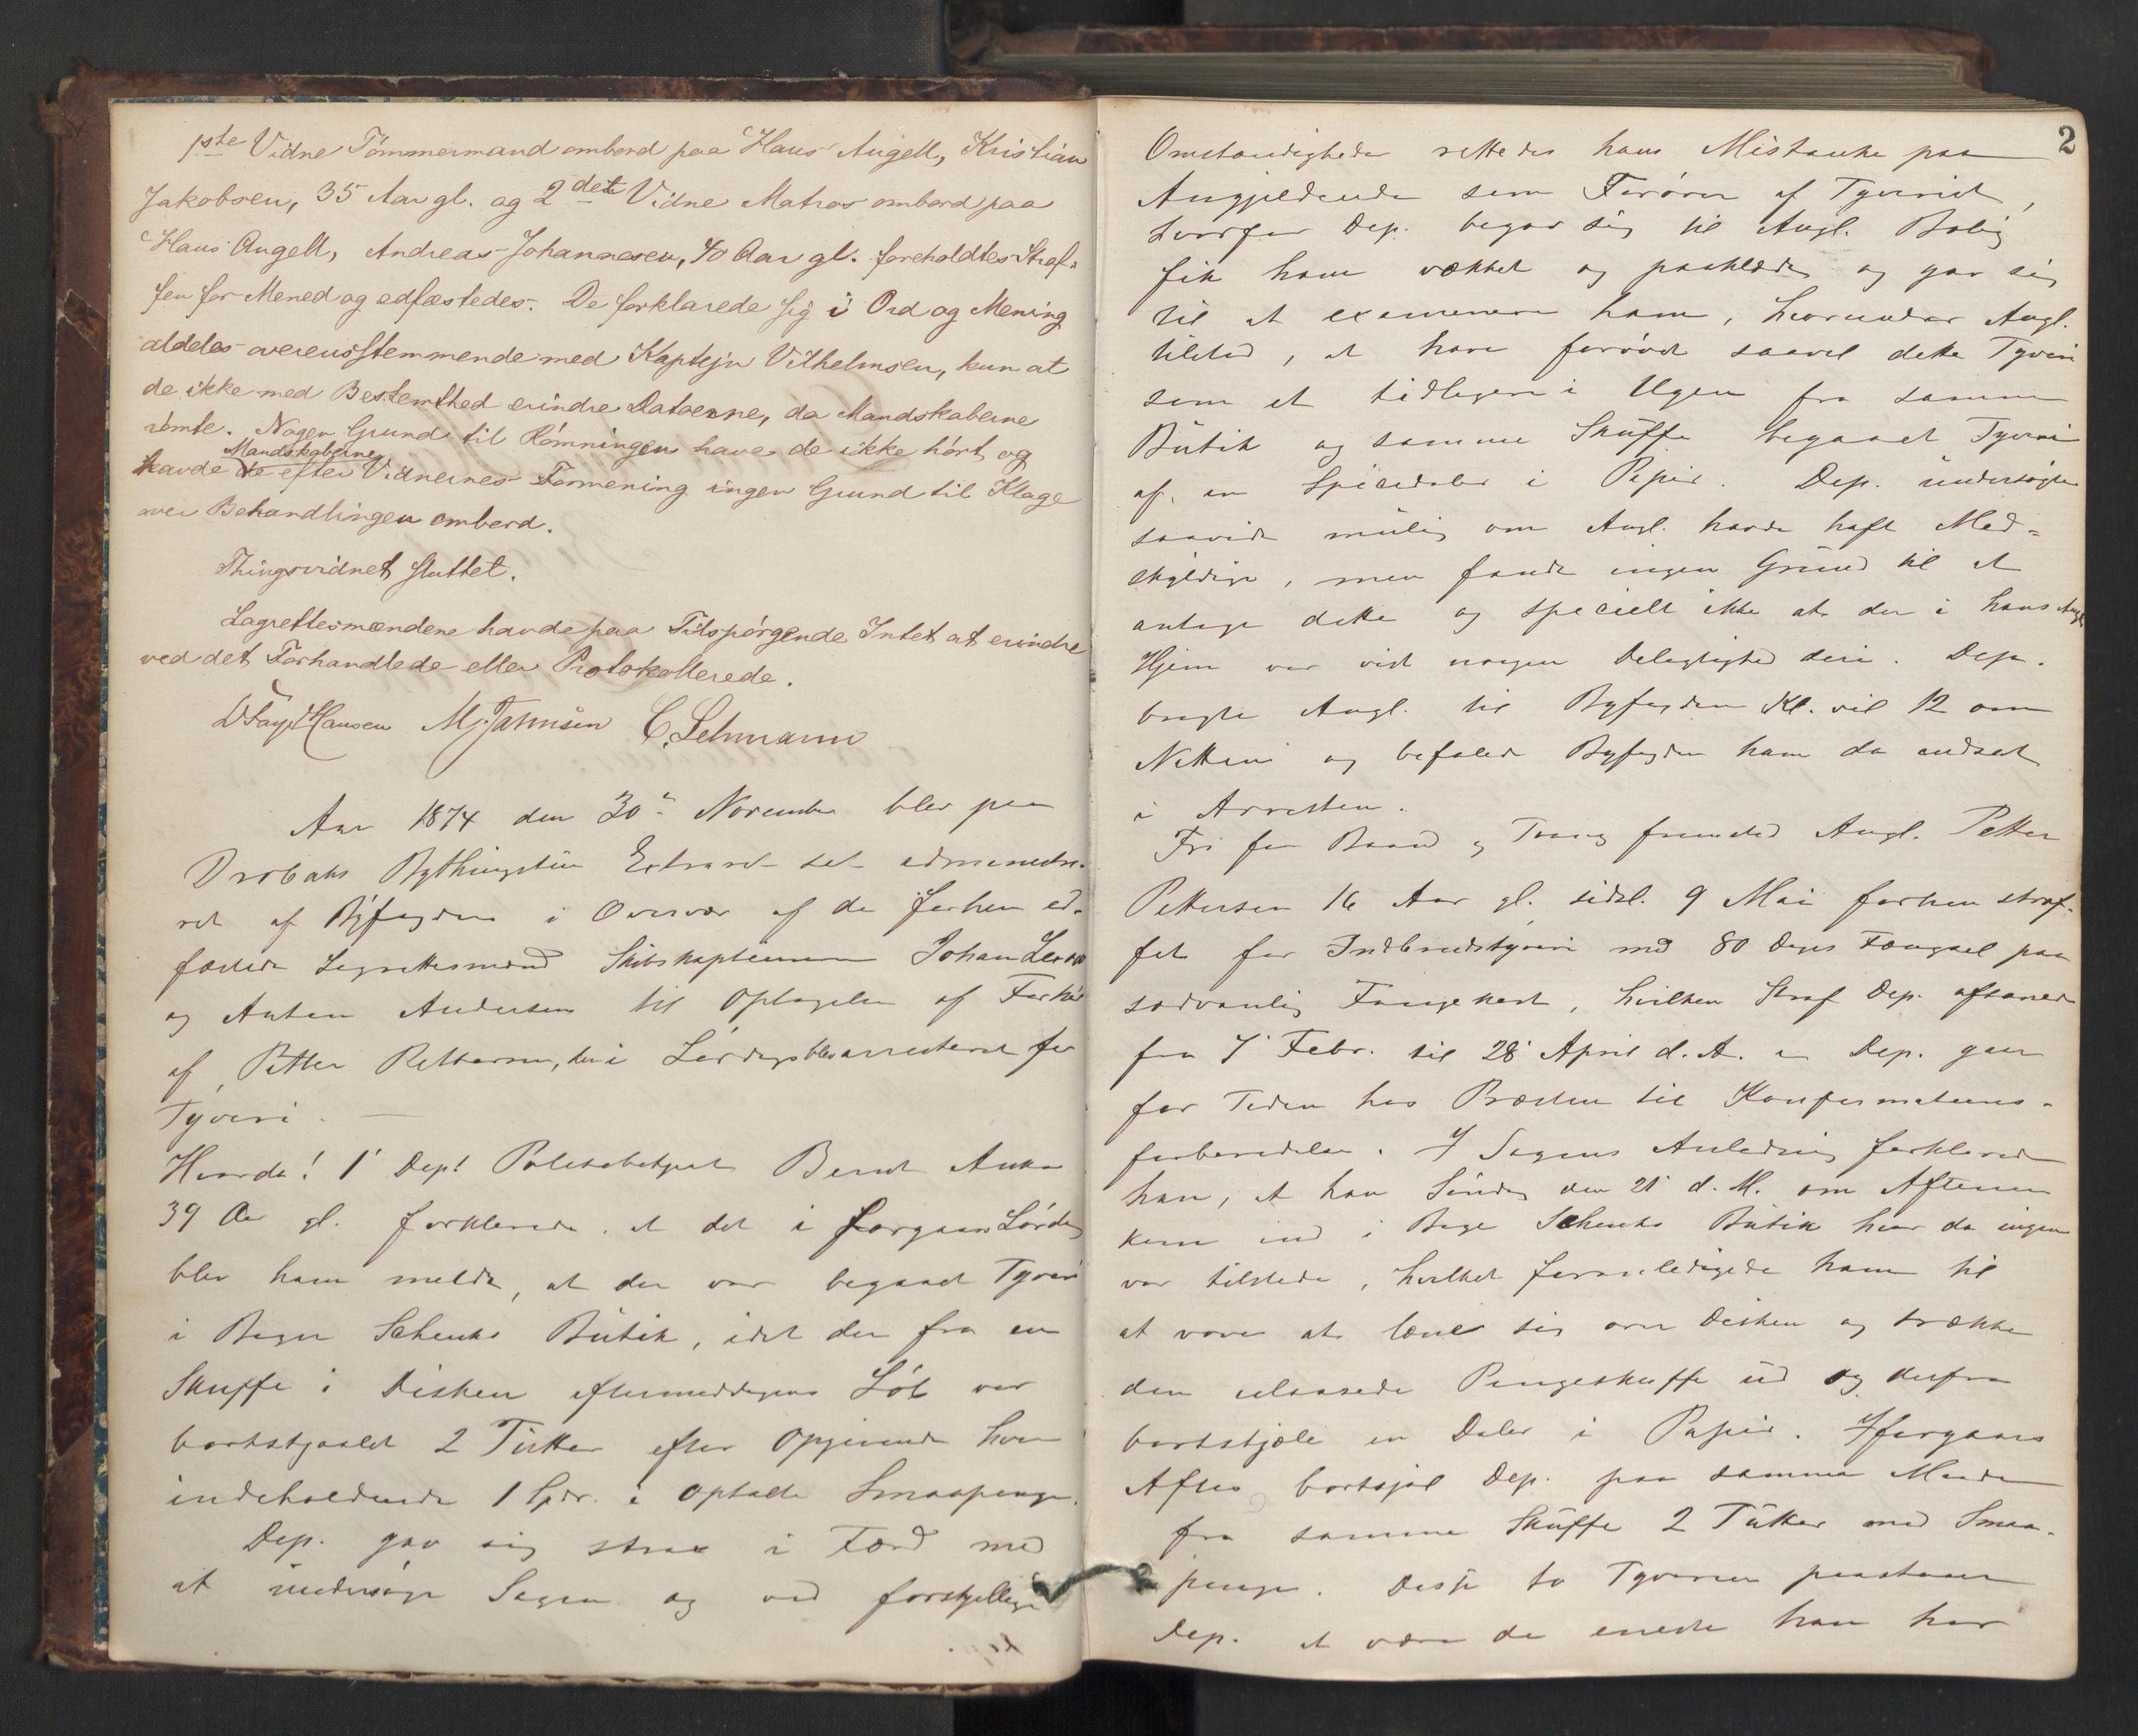 1ste Vidne Tømmermand ombord paa Hans Angell, Kristian
Jakobsen, 35 Aar gl. og 2det Vidne Matros ombord paa
Hans Angell, Andreas Johannesen, 40 Aar gl. foreholdtes Straf-
fen for Mened og edfæstedes. De forklarede sig i Ord og Mening
aldeles overensstemmende med Kaptejn Vilhelmsen, kun at
de ikke med Bestemthed erindre Datoerne, da Mandskaberne
rømte. Nogen Grund til Rømningen have de ikke hørt og
Mandskaberne
havde de efter Vidnernes Formening ingen Grund til Klage
over Behandlingen ombord.
Thingsvidnet sluttet.
Lagrettesmændene havde paa Tilspørgende Intet at erindre
ved det Forhandlede eller Protokollerede.
Hansen C. Lehmann
Aar 1874 den 30. November blev paa
Drøbaks Bythingstue Extraret sat administre-
ret af Byfogden i Overvær af de forhen ed-
fæstede Lagrettesmænd Skibskapteinerne Johan
og Anton Andersen til Optagelse af Forhør
af Petter Pettersen, der i Lørdags blev arresteret for
Tyveri.
Hvorda! 1. Dep: Politibetjent Bernt Anker
39 Aar gl. forklarede, at det i forgaars Lørdag
blev ham meldt, at der var begaaet Tyveri
i Bager Schenks Butik, idet der fra en
Skuffe i Disken eftermiddagens Løb var
bortstjaalet 2 Tutter efter Opgivende hver
indeholdende 1 Spdr. i optalte Smaapenge.
Dep. gav sig strax i Færd med
at undersøge Sagen og ved forskjellige
2
Omstændigheder rettedes hans Mistanke paa
Angjældende som Forøver af Tyveriet,
hvorfor Dep. begav sig til Angl. Bolig
fik ham vækket og paaklædt og gav sig
til at examinere ham, hvorunder Angl.
tilstod, at have forøvet saavel dette Tyveri
som et tidligere i Ugen fra samme
Butik og samme Skuffe begaaet Tyveri
af en Speciedaler i Papir. Dep. undersøgte
saavidt mulig om Angl. havde haft Med-
skyldige, men fandt ingen Grund til at
antage dette og specielt ikke at der i hans Angl.
Hjem var vist nogen Delagtighed deri. Dep.
bragte Angl. til Byfogden Kl. vel 12 om
Natten og befalede Byfogden ham da indsat
i Arresten.
Fri for Baand og Tvang fremstod Angl. Petter
Pettersen 16 Aar gl. sidstl. 9 Mai forhen straf-
fet for Indbrudstyveri med 80 Dages Fængsel paa
sædvanlig Fangekost, hvilken Straf Dep. afsonede
fra 7. Febr. til 28. April d. A. Dep. gaar
for Tiden hos Præsten til Konfirmations-
forberedelse. I Sagens Anledning forklarede
han, at han Søndag den 21. d. M. om Aftenen
kom ind i Bager Schenks Butik hvor da ingen
var tilstede, hvilket foranledigede ham til
at vove at læne sig over Disken og trække
den ulaasede Pengeskuffe ud og derfra
bortstjæle en Daler i Papir. Iforgaars
Aftes bortstjal Dep. paa samme Maade
fra samme Skuffe 2 Tutter med Smaa-
penge. Disse to Tyverier paastaar
Dep. at være de eneste han har